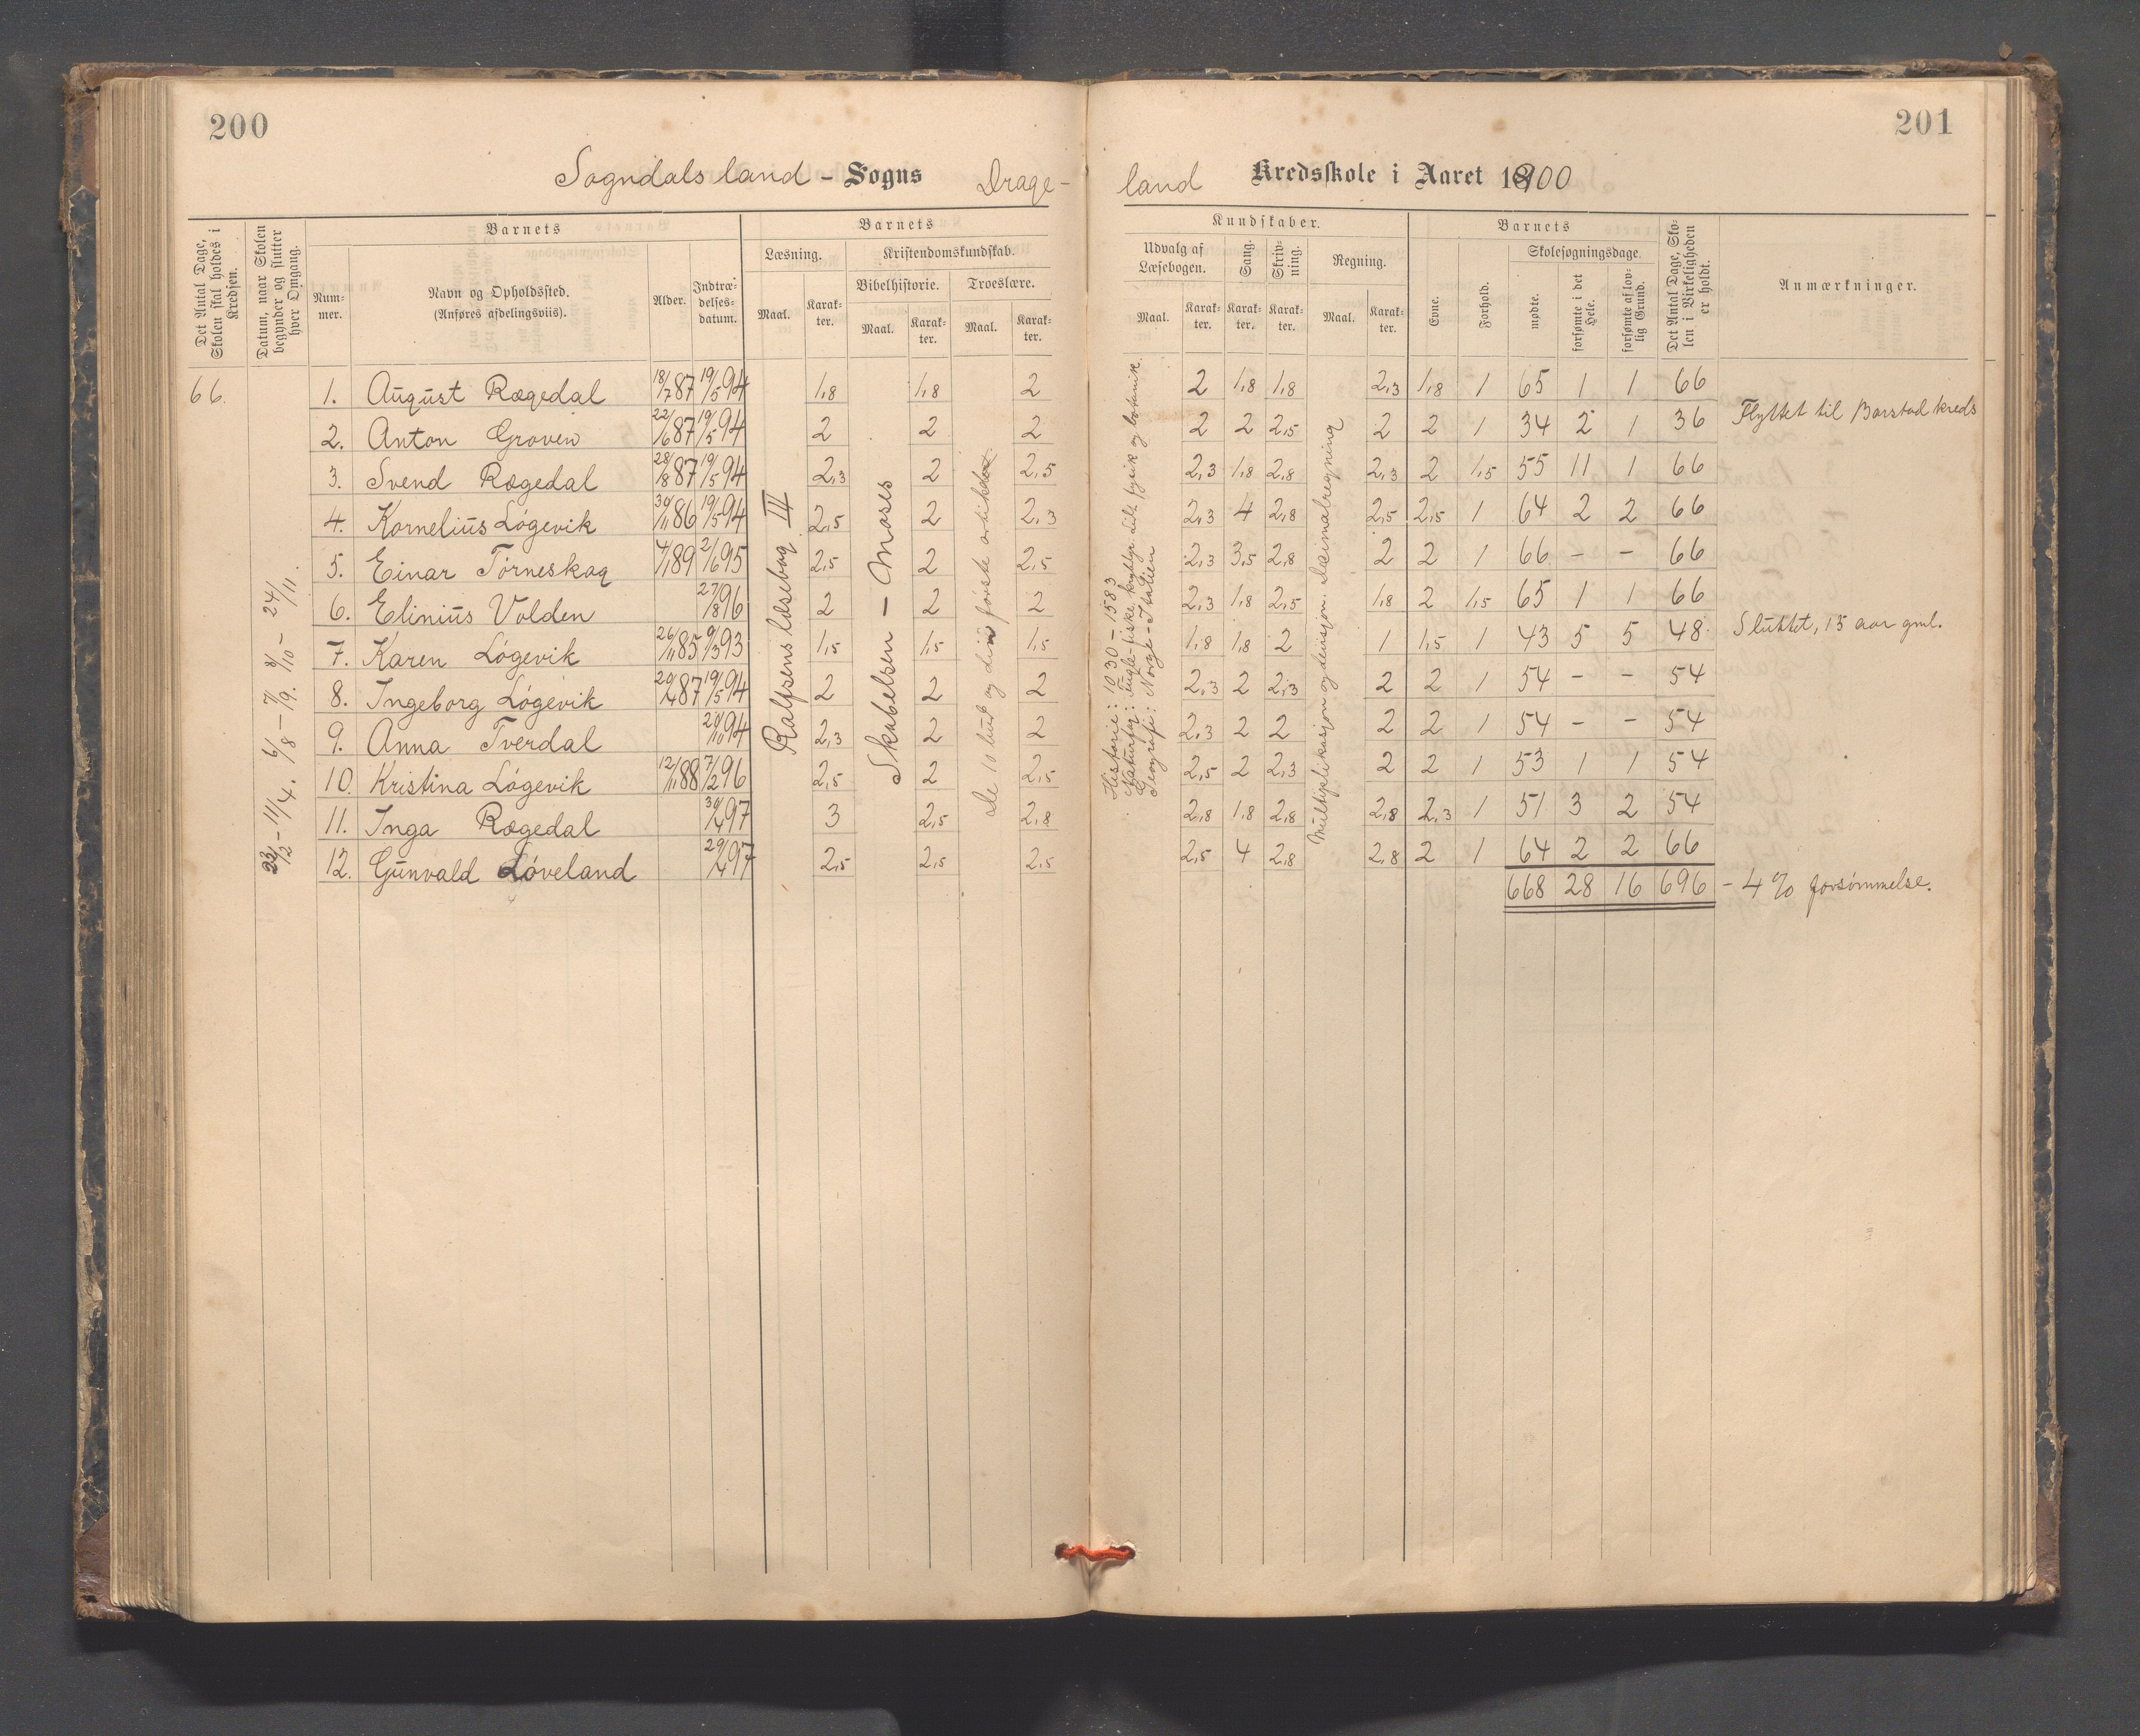 200
201
Sogndalsland - Sogns Drage-
land Kredsskole i Aaret 1900
Det Antal Dage, Skolen skal holdes i Kredsen.
Datum, naar Skolen begynder og slutter hver Omgang.
Barnets
Num-mer.
Navn og Opholdssted.
(Anføres afdelingsviis).
Alder.
Indtræ-delses-datum.
Barnets
Læsning.
Maal.
Karak-ter.
Kristendomskundskab.
Bibelhistorie.
Maal.
Karak-ter.
Troeslære.
Maal.
Karak-ter.
Kundskaber.
Udvalg af Læsebogen.
Maal.
Karak-ter.
Sang.
Karak-ter.
Skriv-ning.
Karak-ter.
Regning.
Maal.
Karak-ter.
Barnets
Evne.
Forhold.
Skolesøgningsdage.
mødte.
forsømte i det Hele.
forsømte af lov-lig Grund.
Det Antal Dage, Sko-len i Virkeligheden er holdt.
Anmærkninger.
66.
23/2 - 11/4. 6/8 - 7/9. 8/10 - 24/11.
Ralfsens læsebog III
Skabelsen - Moses
De 10 bud og din første artikel
Historie: 1030-1583
Naturfag: Fugle-fiske, krybdyr. Lidt fysik og botanik.
Geografi: Norge - Italien
Multiplikasjon og devisjon. Decimalregning
1. August Rægedal 18/7 87 19/5 94 1,8 1,8 2 2 1,8 1,8 2,3 1,8 1 65 1 1 66
2. Anton Groven 22/6 87 19/5 94 2 2 2 2 2 2,5 2 2 1 34 2 1 36 Flyttet til Barstad kreds
3. Svend Rægedal 28/8 87 19/5 94 2,3 2 2,5 2,3 1,8 2,8 2,3 2 1,5 55 11 1 66
4. Kornelius Løgevik 30/11 86 19/5 94 2,5 2 2,3 2,3 4 2,8 2,5 2,5 1 64 2 2 66
5. Einar Tørneskog 4/1 89 2/6 95 2,5 2 2,5 2,3 3,5 2,8 2 2 1 66 - - 66
6. Elinius Volden 27/8 96 2 2 2 2,3 1,8 2,5 1,8 2 1,5 65 1 1 66
7. Karen Løgevik 26/11 85 9/3 93 1,5 1,5 1,5 1,8 1,8 2 1 1,5 1 43 5 5 48 Sluttet, 15 aar gml.
8. Ingeborg Løgevik 20/4 87 19/5 94 2 2 2 2,3 2 2,3 2 2 1 54 - - 54
9. Anna Tverdal 20/10 94 2,3 2 2 2,3 2 2 2 2 1 54 - - 54
10. Kristina Løgevik 12/11 88 7/2 96 2,5 2 2,5 2,5 2 2,3 2 2 1 53 1 1 54
11. Inga Rægedal 30/4 97 3 2,5 2,8 2,8 1,8 2,8 2,8 2,3 1 51 3 2 54
12. Gunvald Løveland 29/4 97 2,5 2,5 2,5 2,5 4 2,8 2,8 2 1 64 2 2 66
668 28 16 696 - 4 % forsømmelse.